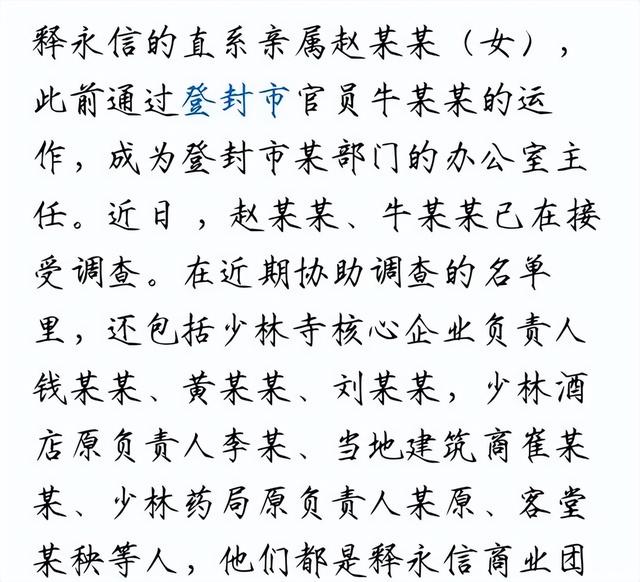 释永信的直系亲属赵某某（女），
此前通过登封市官员牛某某的运
作，成为登封市某部门的办公室主
任。近日 ，赵某某、牛某某已在接
受调查。在近期协助调查的名单
里，还包括少林寺核心企业负责人
钱某某、黄某某、刘某某，少林酒
店原负责人李某、当地建筑商崔某
某、少林药局原负责人某原、客堂
某秧等人，他们都是释永信商业团